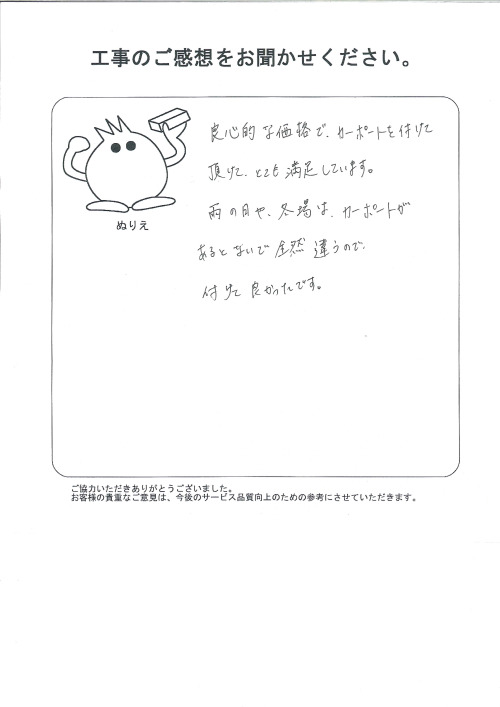 工事のご感想をお聞かせください。
良心的な価格で、カーポートを付けて
頂けて、とても満足しています。
雨の日や、冬場は、カーポートが
あるとないで全然違うので、
付けて良かったです。
ぬりえ
ご協力いただきありがとうございました。
お客様の貴重なご意見は、今後のサービス品質向上のための参考にさせていただきます。